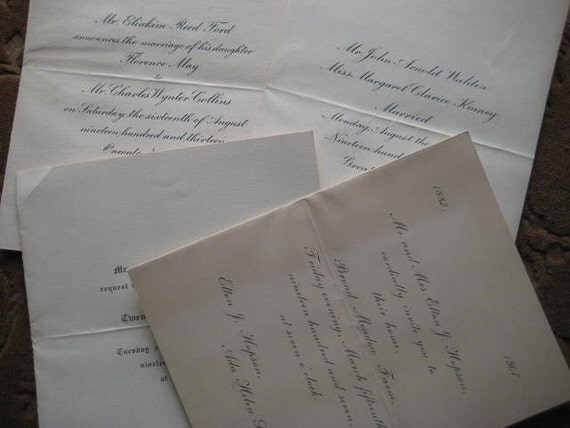 Mr. Eliakim Reed Ford
announces the marriage of his daughter
Florence May
to
Mr. Charles Wynter Collins
on Saturday, the sixteenth of August
nineteen hundred and thirteen
Oneonta
Mr. John Arnolet Walden
Miss Margaret Clarice Kinney
Married
Monday August the
Nineteen hund
Grea
Mr.
request
Twen
Tuesday
ninete
at
1882.
Mr. and Mrs Elton J. Hopson,
cordially invite you to
their home,
Broad Meadow Farm,
Friday evening, March fifteenth
nineteen hundred and seven,
at seven o'clock.
Elton J. Hopson,
Ada Helen